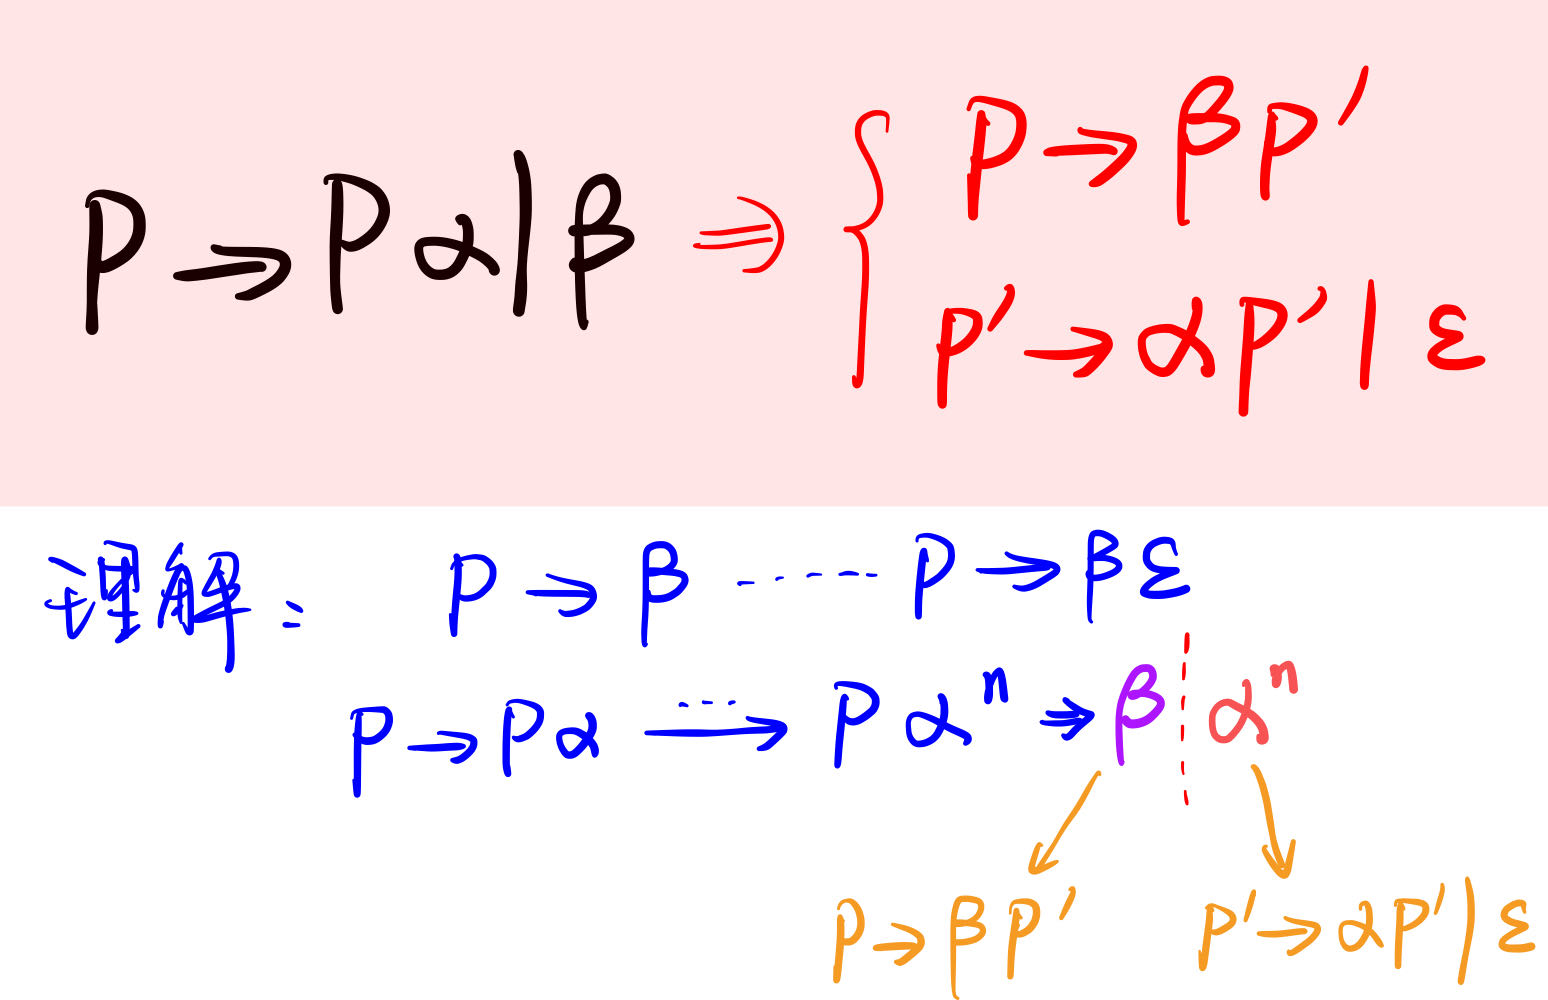 P → Pα | β ⇒ { P → βP'
P' → αP' | ε
理解: P → β ······ P → βε
P → Pα ···⟶ Pα^n ⇒ β ¦ α^n
P → βP' P' → αP' | ε